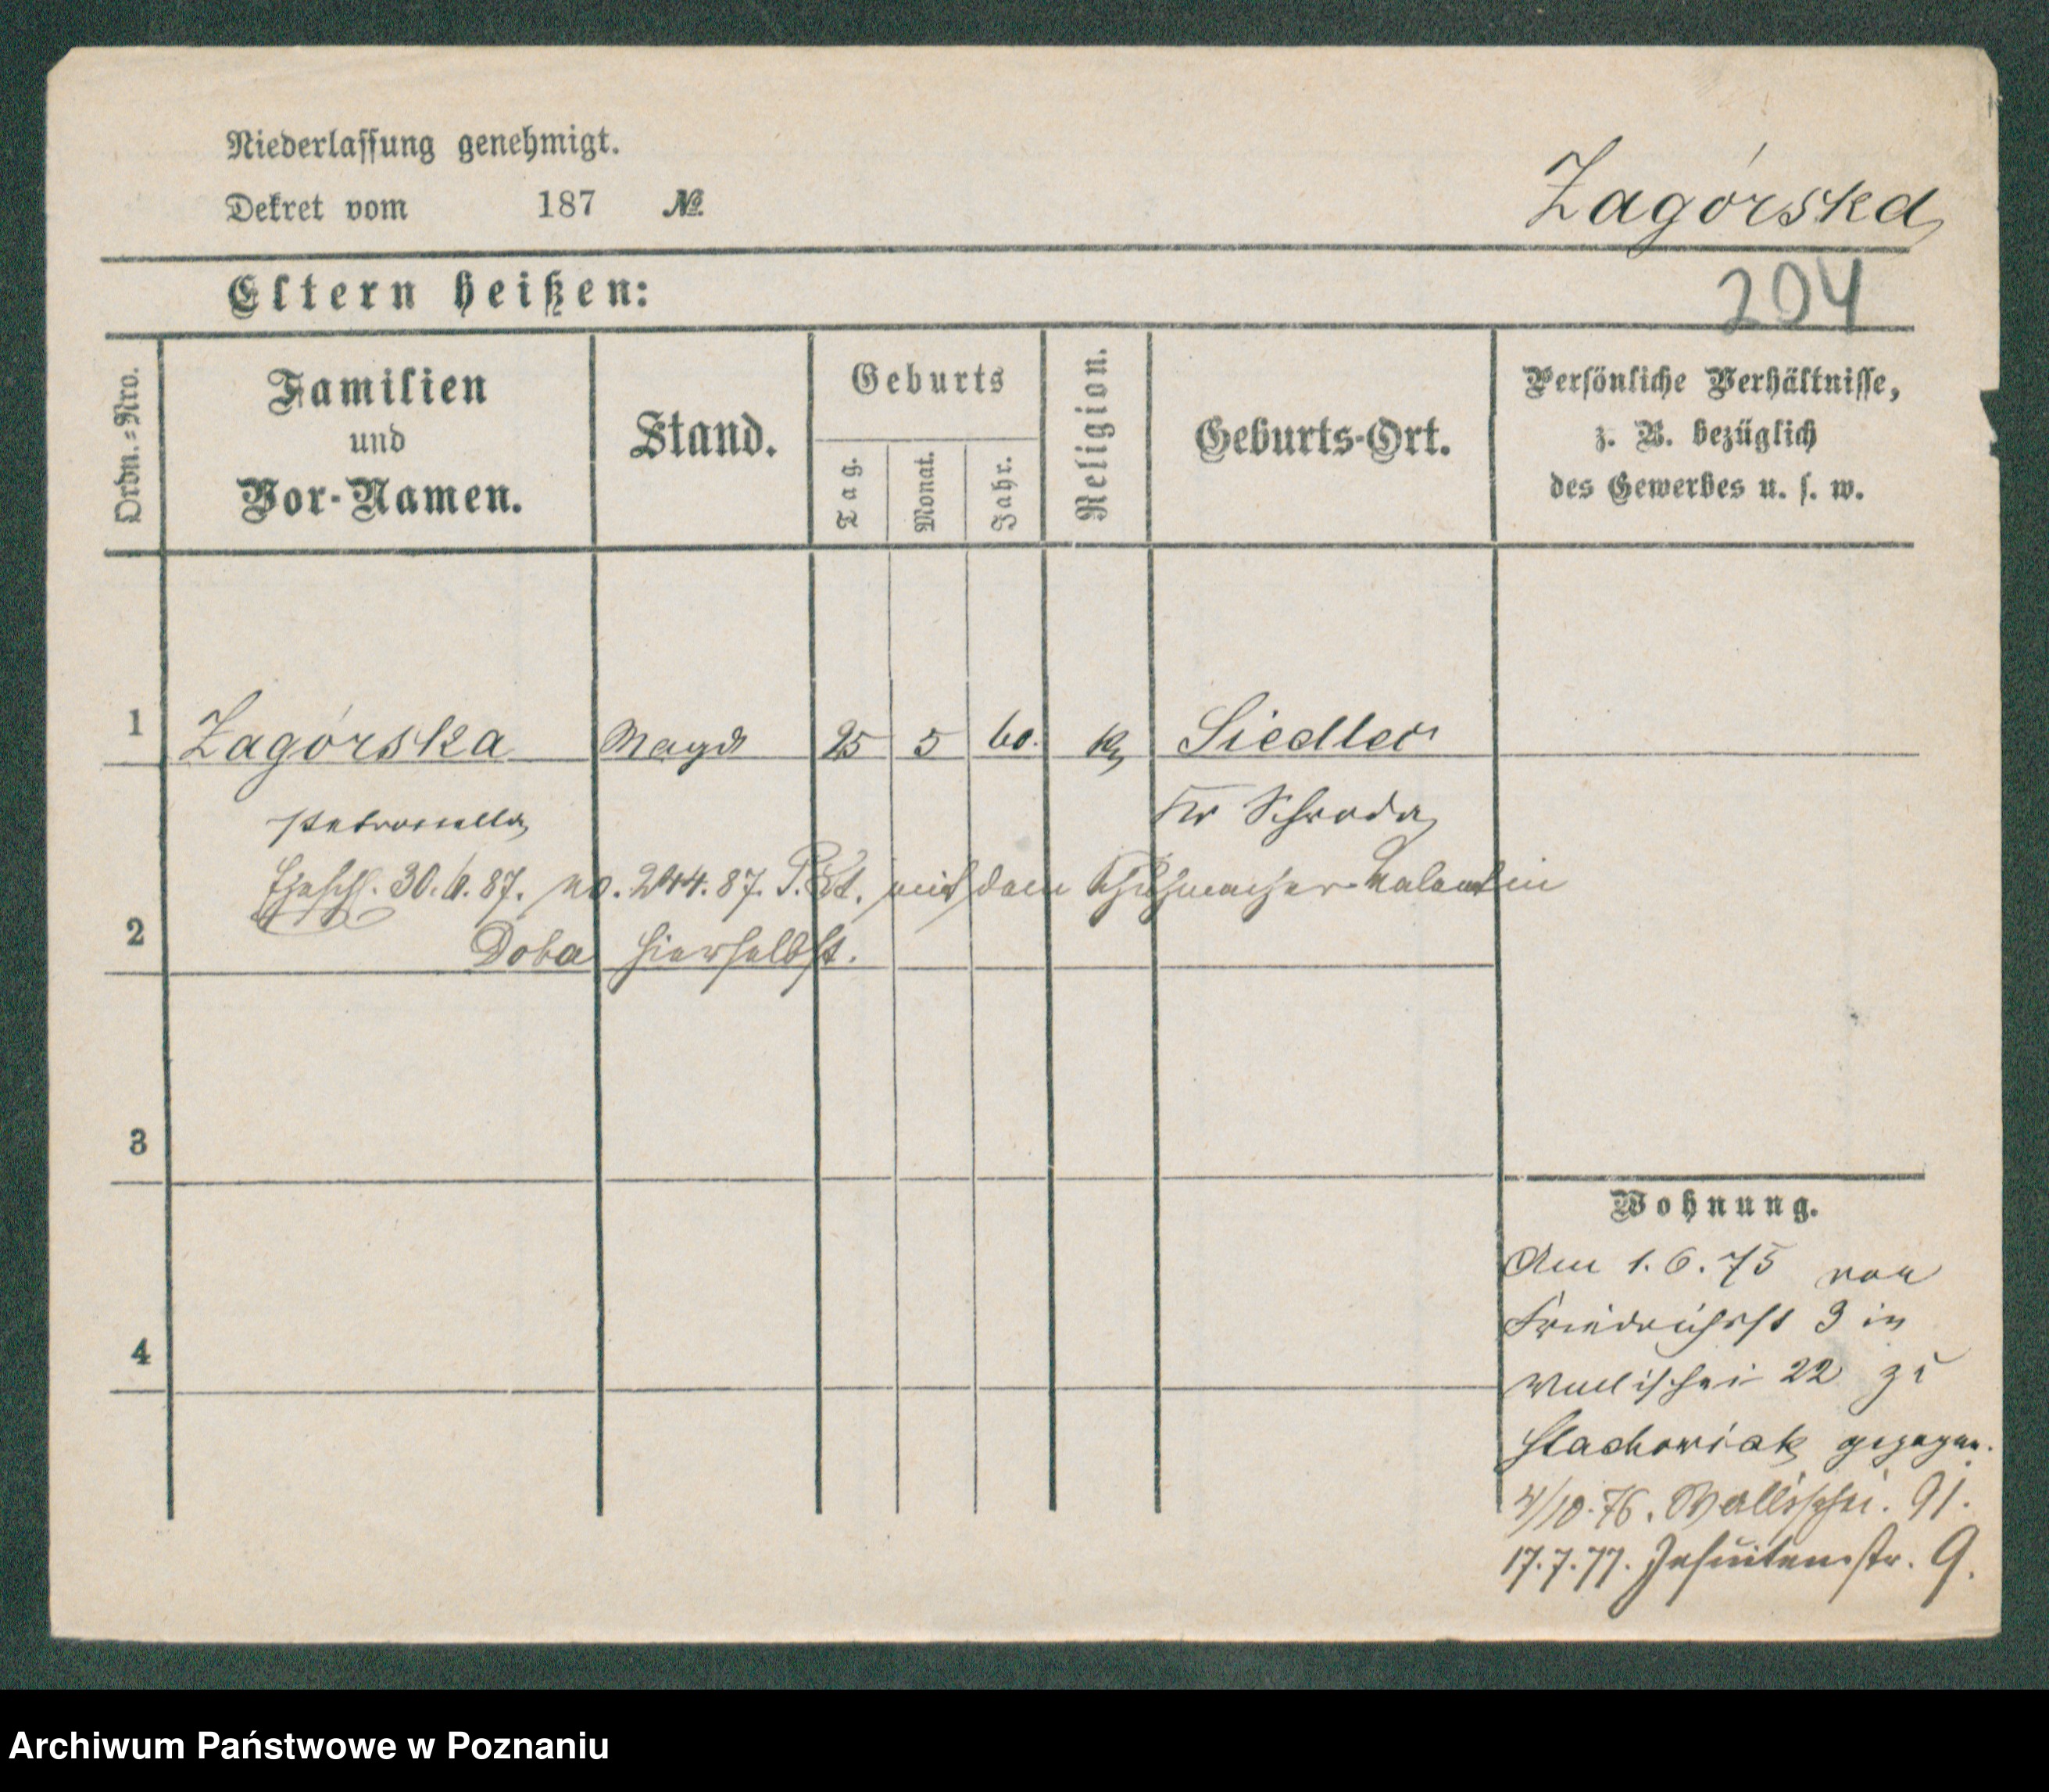 Niederlassung genehmigt.
Dekret vom 187 No.
Zagórska
204
Eltern heißen:
Ordn.=Nro.
Familien
und
Vor-Namen.
Stand.
Geburts
Tag.
Monat.
Jahr.
Religion.
Geburts-Ort.
Persönliche Verhältnisse,
z. B. bezüglich
des Gewerbes u. s. w.
1 Zagórska Magd 25 5 60. k Siedlec
Petronella Kr Schroda
Eheschl. 30. 6. 87. no. 244. 87. P. St. mit dem Schuhmacher Valentin
2 Doba hierselbst.
3
4
Wohnung.
Am 1. 6. 75 von
Friedrichsst 3 in
Wallischei 22 zu
Stachowiak gezogen.
4/10. 76. Wallischei. 91.
17. 7. 77. Jesuitenstr. 9.
Archiwum Państwowe w Poznaniu